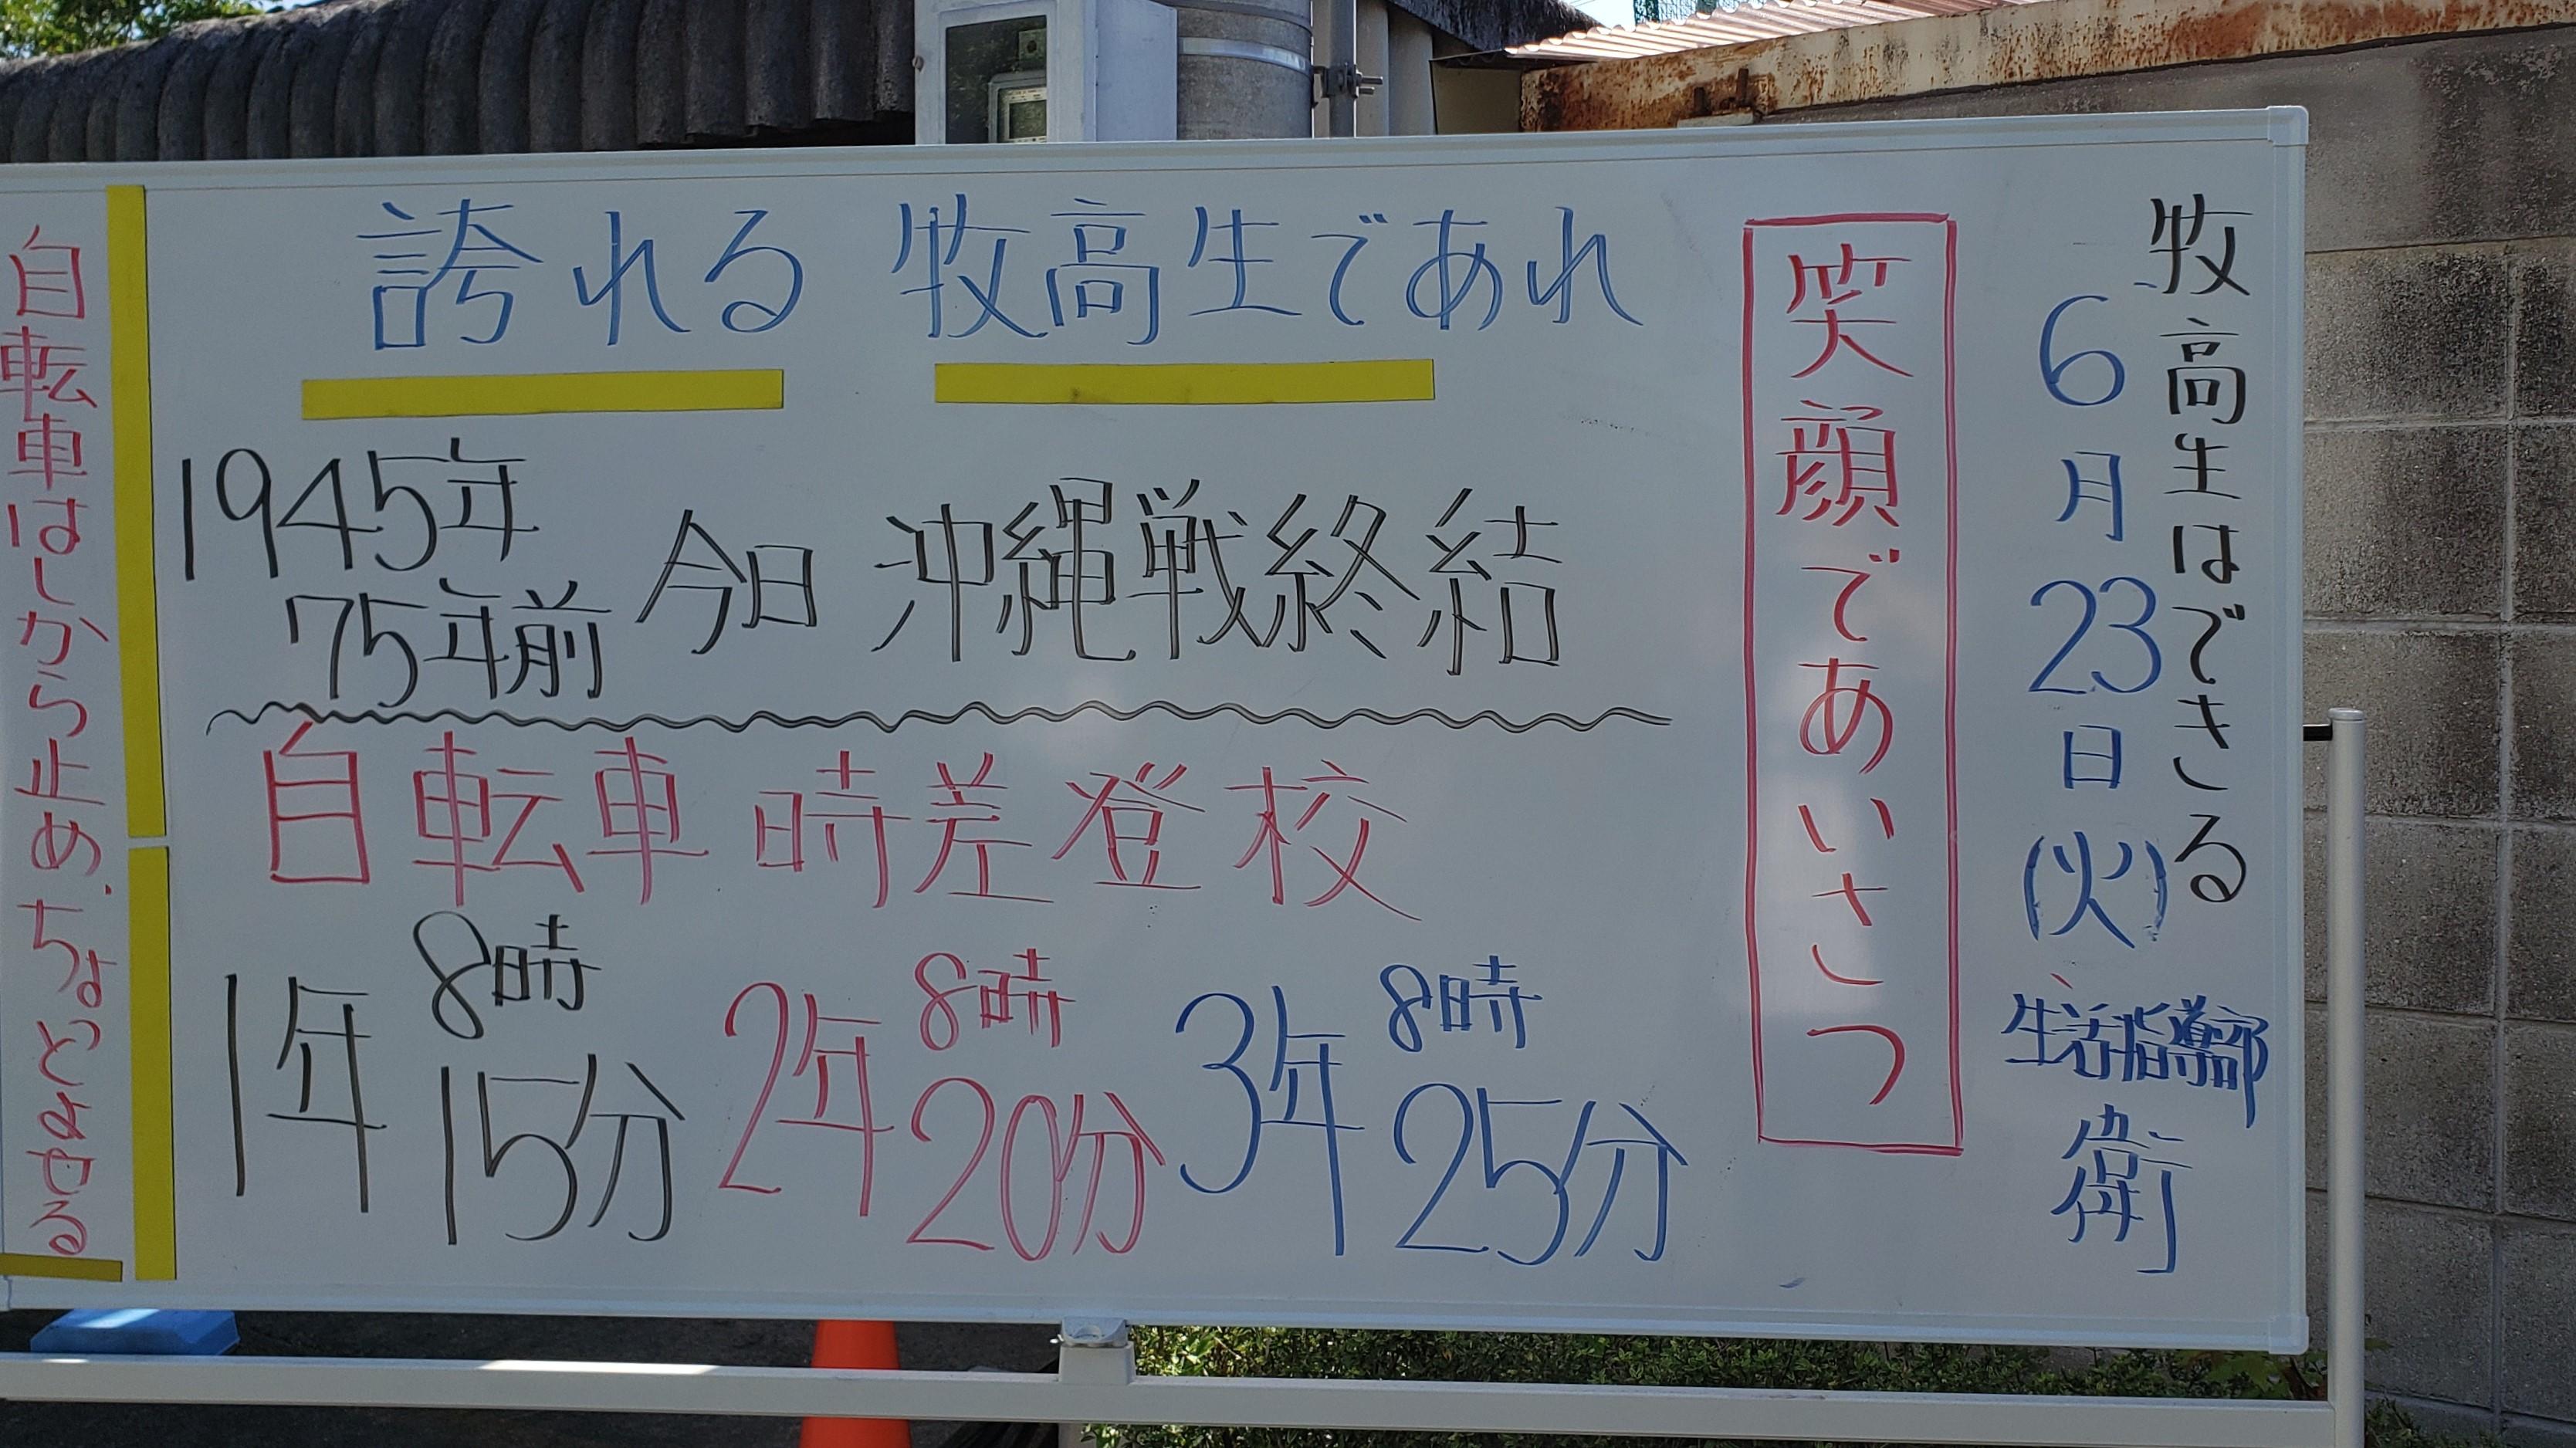 牧高生はできる
6月23日(火)
生活指導部
衛
笑顔であいさつ
誇れる 牧高生であれ
1945年
75年前
今日 沖縄戦終結
自転車 時差登校
1年 8時15分
2年 8時20分
3年 8時25分
自転車はしから止め、ちょっとみせる